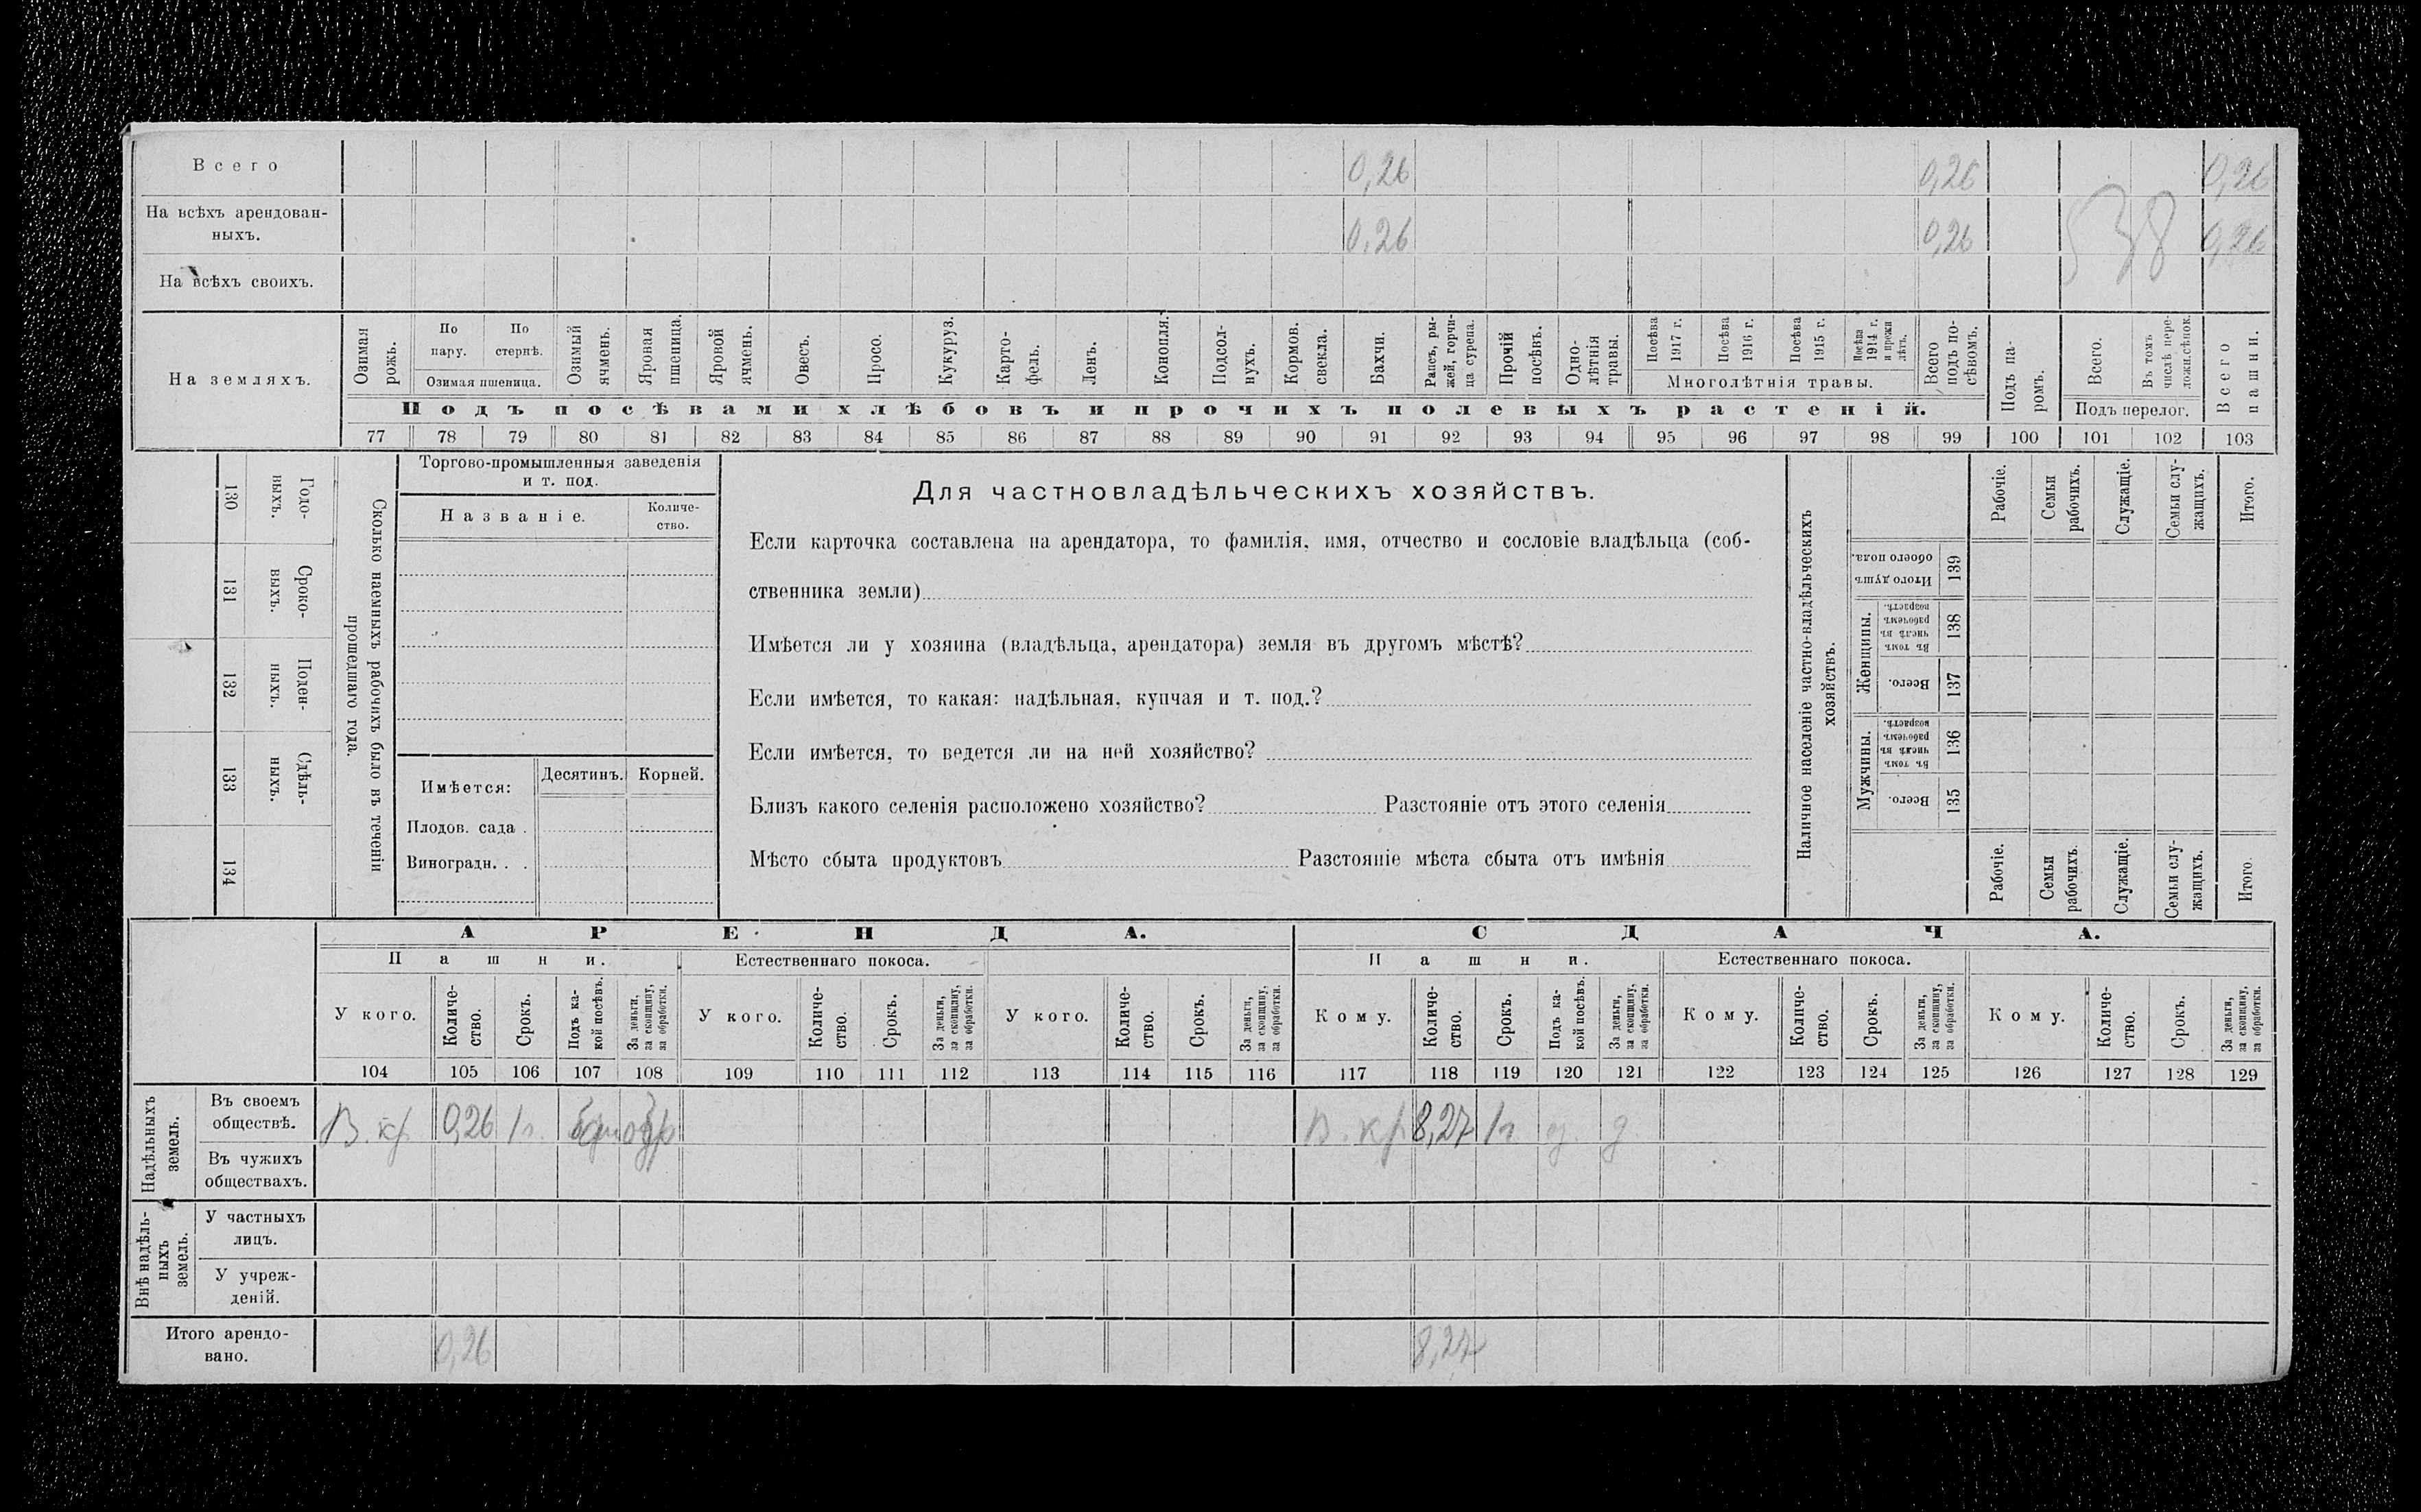 Всего 0,26 0,26 0,26
На всѣхъ арендован-
ныхъ. 0,26 0,26 38 0,26
На всѣхъ своихъ.
На земляхъ.
Озимая рожь.
По пару.
По стернѣ.
Озимая пшеница.
Озимый ячмень.
Яровая пшеница.
Яровой ячмень.
Овесъ.
Просо.
Кукуруз.
Карто-
фель.
Ленъ.
Конопля.
Подсол-
нухъ.
Кормов. свекла.
Бахчи.
Рапсъ, ры-
жей, горчи-
ца сурепа.
Прочій посѣвъ.
Одно-
лѣтнія травы.
Посѣва 1917 г.
Посѣва 1916 г.
Посѣва 1915 г.
Посѣва 1914 г. и прежн лѣтъ.
Многолѣтнія травы.
Всего подъ по-
сѣвомъ.
Подъ па-
ромъ.
Всего.
Въ томъ числѣ пере-
ложн.сѣнок.
Подъ перелог.
Всего пашни.
Подъ посѣвами хлѣбовъ и прочихъ полевыхъ растеній.
77 78 79 80 81 82 83 84 85 86 87 88 89 90 91 92 93 94 95 96 97 98 99 100 101 102 103
130 Годо-
выхъ.
131 Сроко-
выхъ.
132 Поден-
ныхъ.
133 Сдѣль-
ныхъ.
134
Сколько наемныхъ рабочихъ было въ теченіи
прошедшаго года.
Торгово-промышленныя заведенія
и т. под.
Названіе.
Количе-
ство.
Имѣется: Десятинъ. Корней.
Плодов. сада .
Виноградн. . .
Для частновладѣльческихъ хозяйствъ.
Если карточка составлена на арендатора, то фамилія, имя, отчество и сословіе владѣльца (соб-
ственника земли)
Имѣется ли у хозяина (владѣльца, арендатора) земля въ другомъ мѣстѣ?
Если имѣется, то какая: надѣльная, купчая и т. под.?
Если имѣется, то ведется ли на ней хозяйство?
Близъ какого селенія расположено хозяйство? Разстояніе отъ этого селенія
Мѣсто сбыта продуктовъ Разстояніе мѣста сбыта отъ имѣнія
Наличное населеніе частно-владѣльческихъ
хозяйствъ.
Рабочіе.
Семьи рабочихъ.
Служащіе.
Семьи слу-
жащихъ.
Итого.
Итого душъ обоего пола. 139
Женщины.
Въ томъ числѣ въ рабочемъ возрастѣ. 138
Всего. 137
Мужчины.
Въ томъ числѣ въ рабочемъ возрастѣ. 136
Всего. 135
Рабочіе.
Семьи рабочихъ.
Служащіе.
Семьи слу-
жащихъ.
Итого.
АРЕНДА. СДАЧА.
Пашни. Естественнаго покоса. Пашни. Естественнаго покоса.
У кого.
Количе-
ство.
Срокъ.
Подъ ка-
кой посѣвъ.
За деньги, за скопщину, за обработки.
У кого.
Количе-
ство.
Срокъ.
За деньги, за скопщину, за обработки.
У кого.
Количе-
ство.
Срокъ.
За деньги, за скопщину, за обработки.
Кому.
Количе-
ство.
Срокъ.
Подъ ка-
кой посѣвъ.
За деньги, за скопщину, за обработки.
Кому.
Количе-
ство.
Срокъ.
За деньги, за скопщину, за обработки.
Кому.
Количе-
ство.
Срокъ.
За деньги, за скопщину, за обработки.
104 105 106 107 108 109 110 111 112 113 114 115 116 117 118 119 120 121 122 123 124 125 126 127 128 129
Надѣльныхъ земель.
Въ своемъ
обществѣ. В. кр 0,26 1г. В. кр 8,27 1г д
Въ чужихъ
обществахъ.
Внѣ надѣль-
ныхъ земель.
У частныхъ
лицъ.
У учреж-
деній.
Итого арендо-
вано. 0,26 8,27